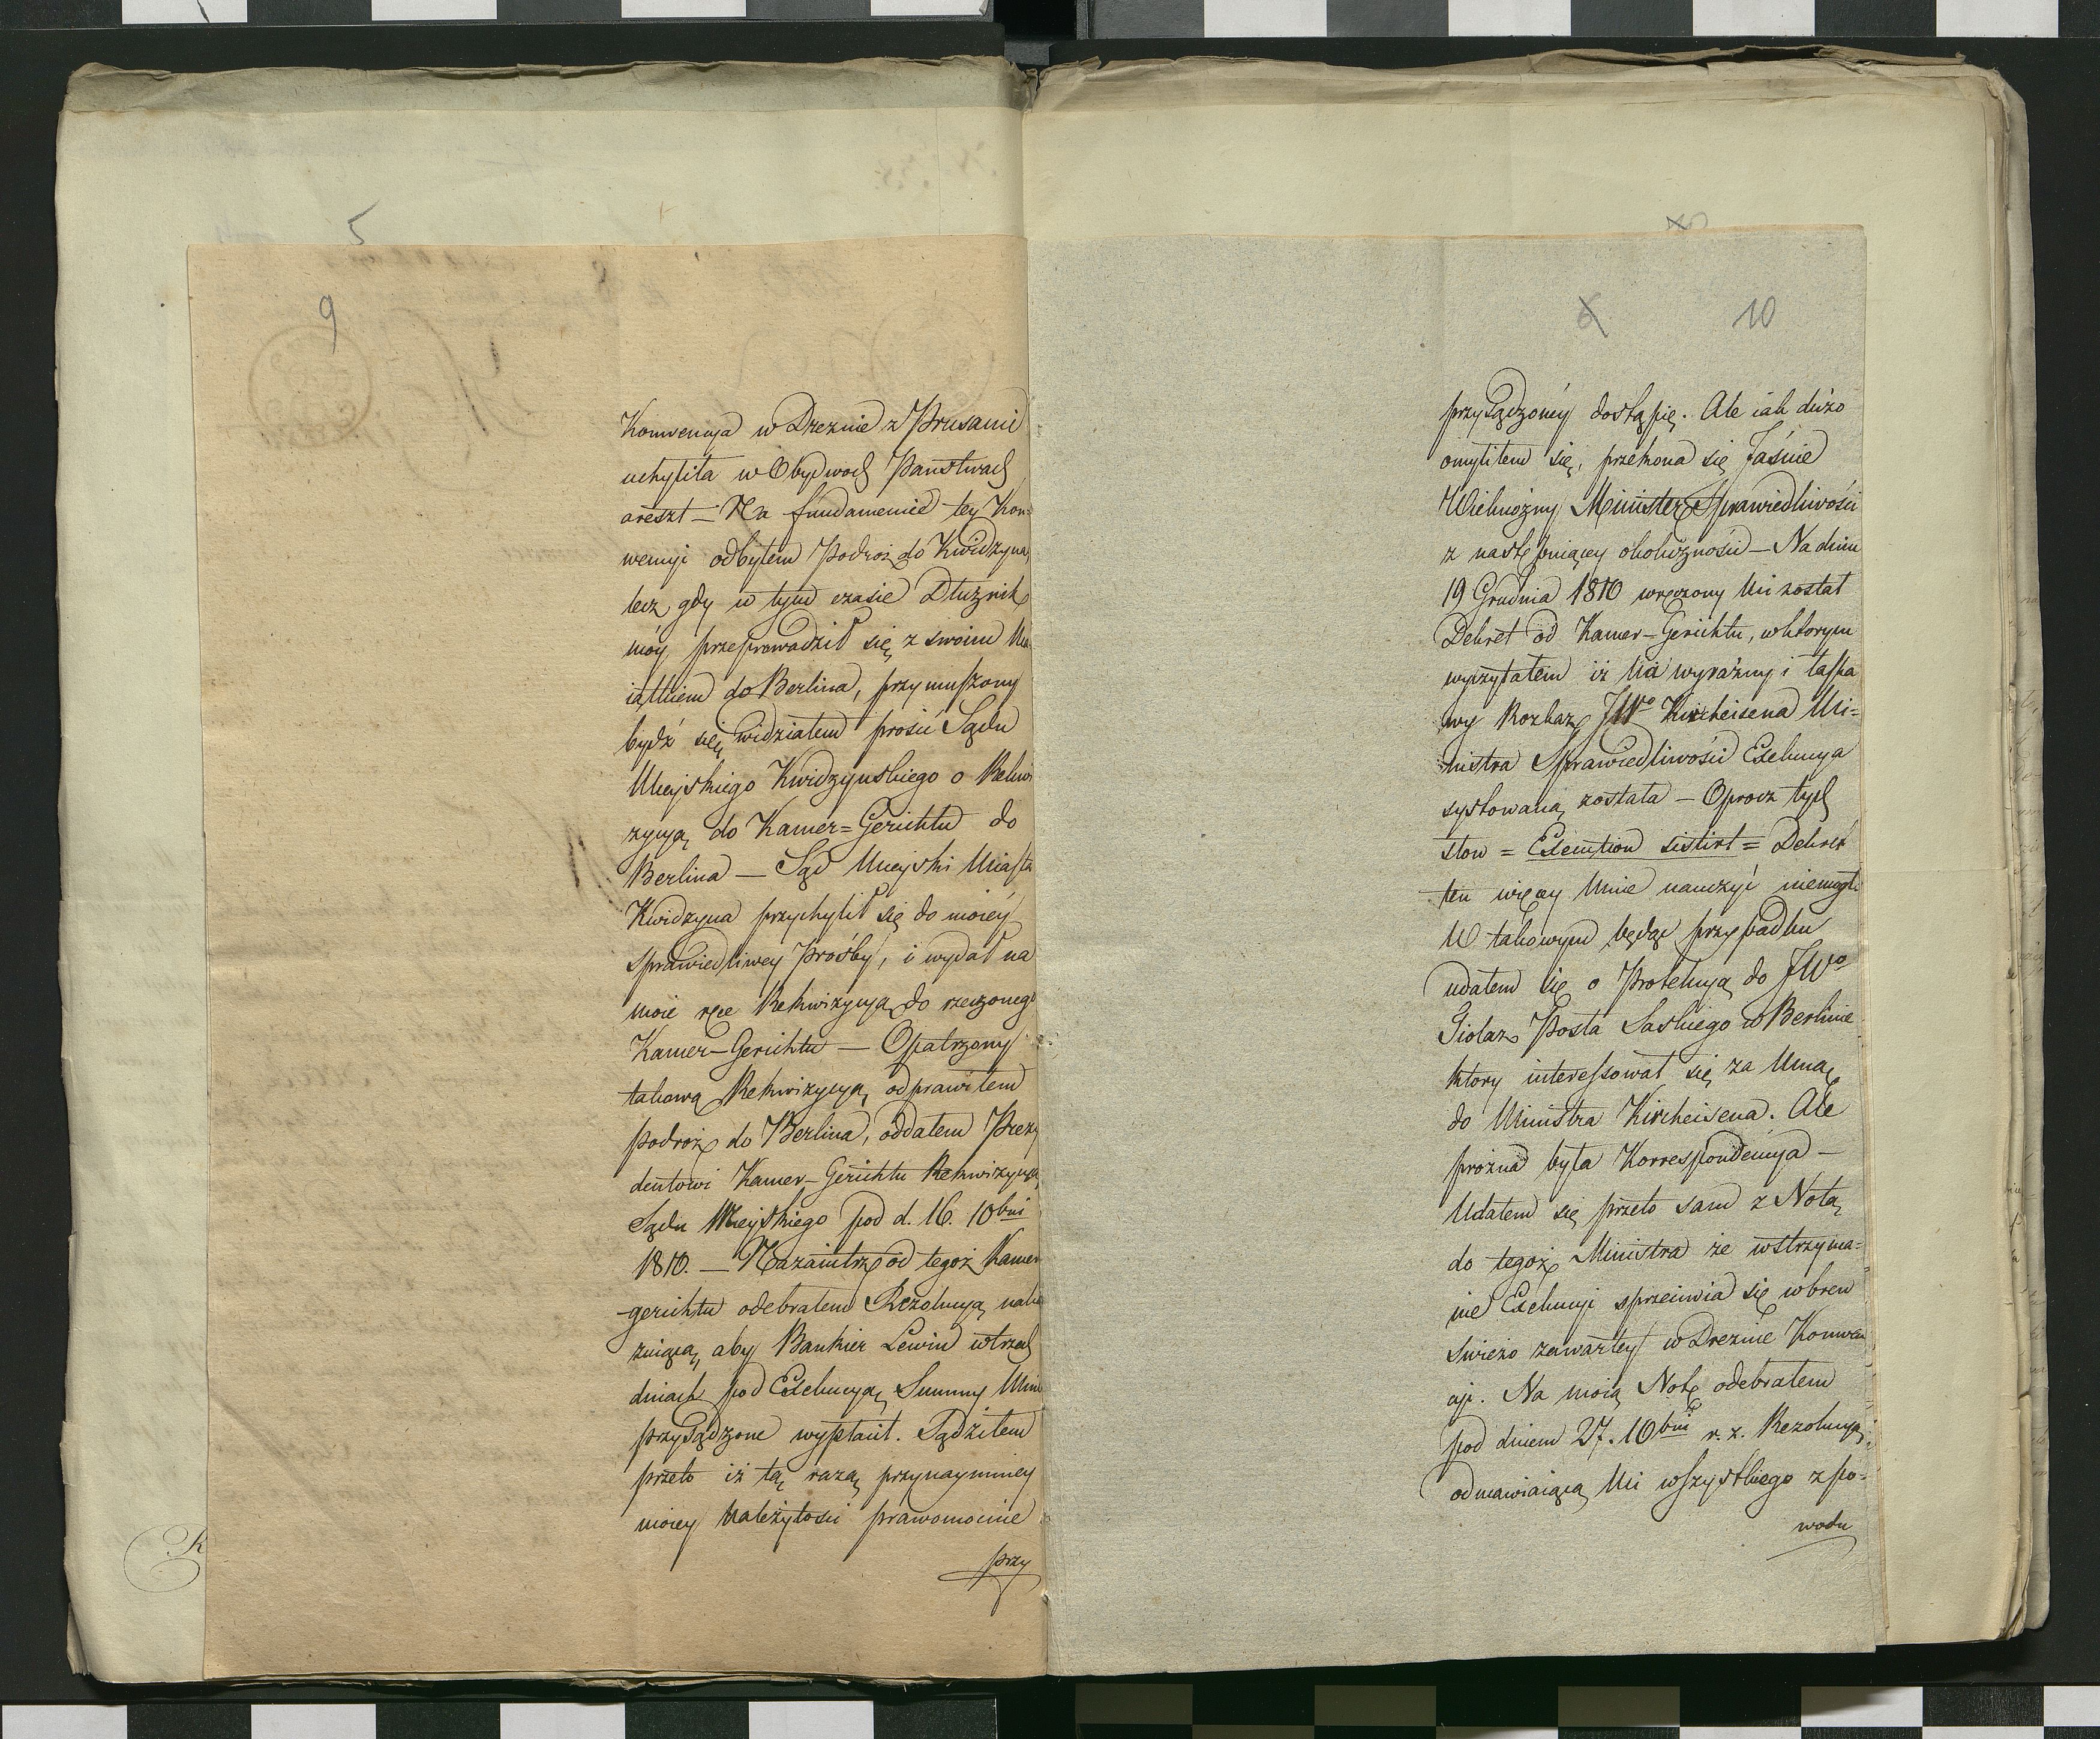 5
9
Konwencya w Dreznie z Prusami
uchyliła w Obydwoch Panstwach
areszt — Na fundamencie tey Kon=
wencyi odbyłem Podroż do Kwidzyna,
lecz gdy w tym czasie Dłużnik
móy przeprowadził się z swoim Ma
iątkiem do Berlina, przymuszony
bydź się widziałem prosić Sądu
Mieyskiego Kwidzynskiego o Rekwi
zycyą do Kamer=Gerichtu do
Berlina — Sąd Mieyski Miasta
Kwidzyna przychylił się do moiéy
sprawiedliwey Prośby, i wydał na
moie ręce Rekwizycyą do rzeczonego
Kamer-Gerichtu — Opatrzony
takową Rekwizycyą, odprawiłem
podroż do Berlina, oddałem Prezy
dentowi Kamer-Gerichtu Rekwizycyą
Sądu Mieyskiego pod d. 16. 10bris
1810. — Nazaiutrz od tegoż Kamer
-gerichtu odebrałem Rezolucyą naka
zuiącą, aby Bankier Lewin w trzech
dniach pod Exekucyą Summy Mnie
przysądzone wypłacił. Sądziłem
przeto iż tą razą przynaymniey
moiey Należytości prawomocnie
przy
10
przysądzonéy dostąpię. Ale iak dużo
omyliłem się, przekona się Jaśnie
Wielmożny Minister Sprawiedliwości
z następuiącey okoliczności — Na dniu
19 Grudnia 1810 wręczony Mi został
Dekret od Kamer-Gerichtu, w ktorym
wyczytałem iż na wyraźny i łaska
wy Rozkaz JWo Kircheisena Mi=
nistra Sprawiedliwości Exekucya
systowaną została — Oprocz tych
słow = Execution sistirt = Dekret
ten więcey Mnie nauczyć niemogł.
W takowym będąc przypadku
udałem się o Protekcyą do JWo
Giolaz Posła Saskiego w Berlinie
ktory interessował się za Mną
do Ministra Kircheisena. Ale
prożna była Korrespondencya —
Udałem się przeto sam z Notą
do tegoż Ministra że wstrzyma=
nie Exekucyi sprzeciwia się wbrew
swieżo zawartey w Dreznie Konwen
cyi. Na moią Notę odebrałem
pod dniem 27. 10bris r. z. Rezolucyą
odmawiaiącą Mi wszystkiego z po=
wodu